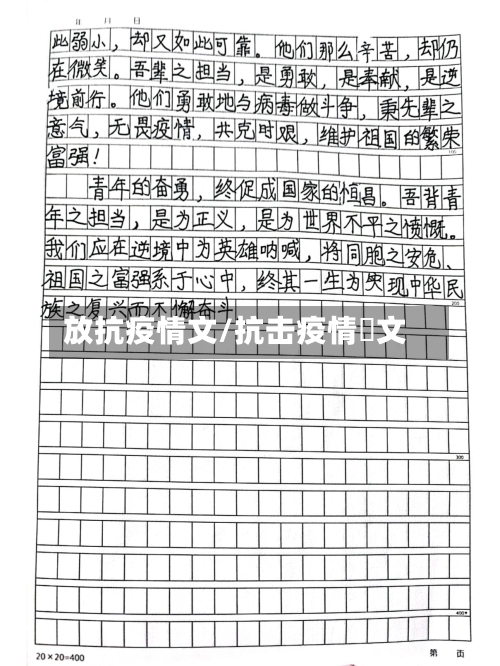 年 月 日
此弱小，却又如此可靠。他们那么辛苦，却仍
在微笑。吾辈之担当，是勇敢，是奉献，是逆
境前行。他们勇敢地与病毒做斗争，秉先辈之
意气，无畏疫情，共克时艰，维护祖国的繁荣
富强！
100
青年的奋勇，终促成国家的恒昌。吾背青
年之担当，是为正义，是为世界不平之愤慨。
我们应在逆境中为英雄呐喊，将同胞之安危、
祖国之富强系于心中，终其一生为实现中华民
200
族之复兴而不懈奋斗
放抗疫情文/抗击疫情文
300
400
20×20=400
第 页